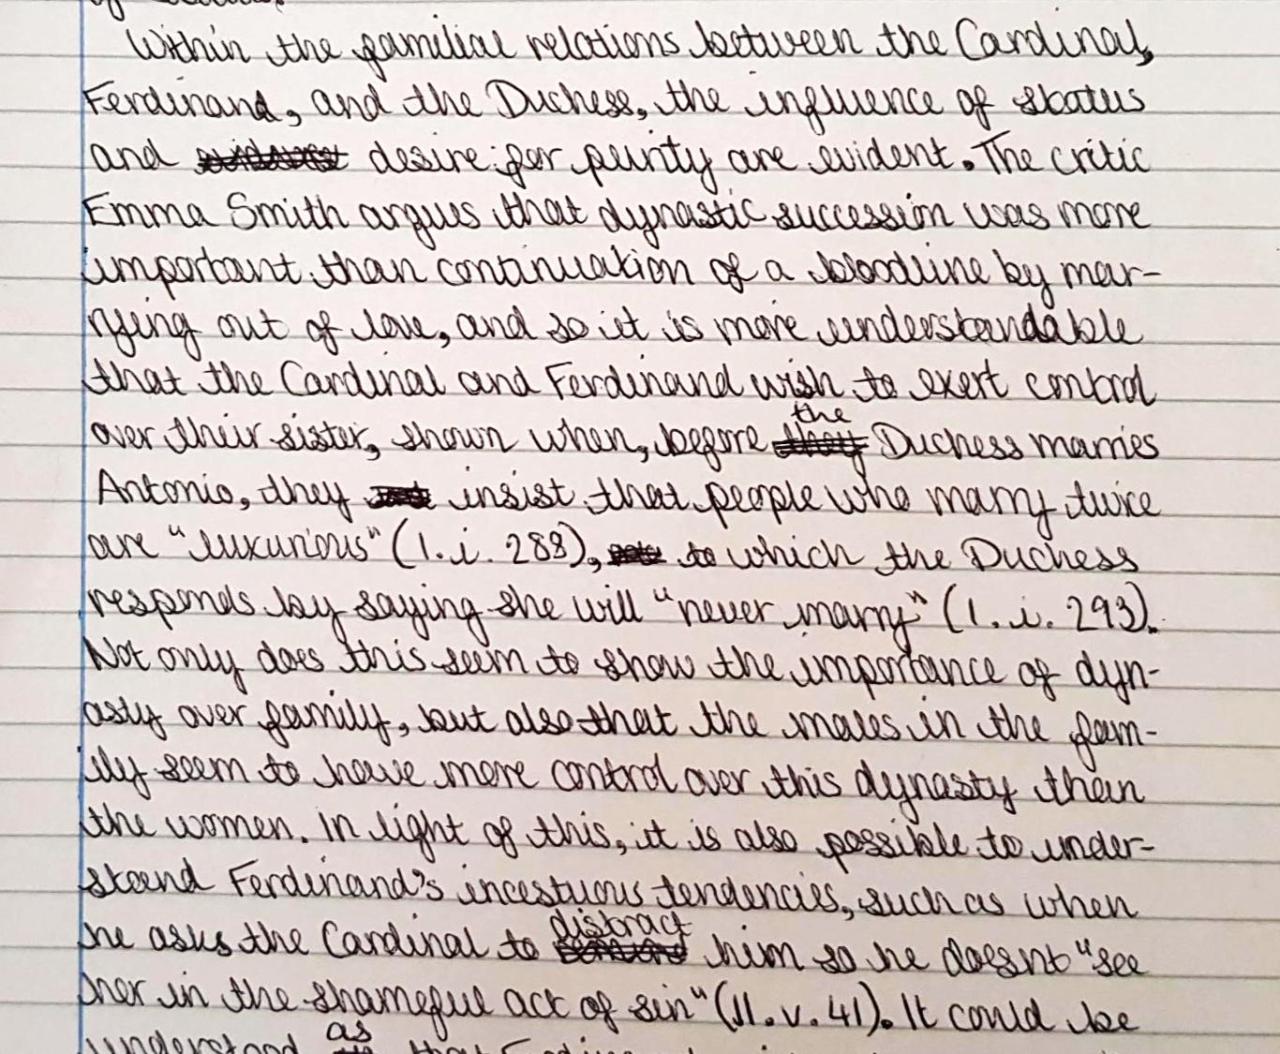 Within the familial relations between the Cardinal,
Ferdinand, and the Duchess, the influence of status
and desire for purity are evident. The critic
Emma Smith argues that dynastic succession was more
important than continuation of a bloodline by mar-
rying out of love, and so it is more understandable
that the Cardinal and Ferdinand wish to exert control
over their sister, shown when, before the Duchess marries
Antonio, they insist that people who marry twice
are "luxurious" (I.i. 288), to which the Duchess
responds by saying she will "never marry" (I.i. 293).
Not only does this seem to show the importance of dyn-
asty over family, but also that the males in the fam-
ily seem to have more control over this dynasty than
the women. In light of this, it is also possible to under-
stand Ferdinand's incestuous tendencies, such as when
he asks the Cardinal to distract him so he doesnt "see
her in the shameful act of sin" (II.v.41). It could be
understood as that